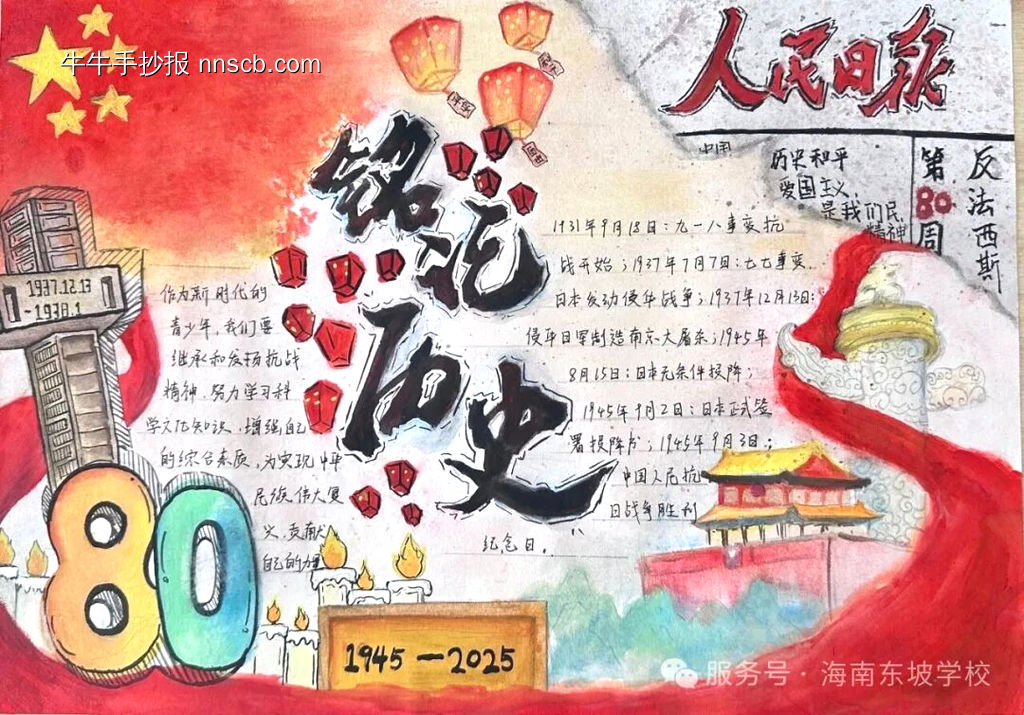 牛牛手抄报 nnscb.com
人民日报
中国
历史和平
爱国主义,
是我们民
精神
第80周
反法西斯
铭记历史
1937.12.13
-1938.1
作为新时代的
青少年,我们要
继承和发扬抗战
精神,努力学习科
学文化知识,增强自己
的综合素质,为实现中华
民族伟大复
兴贡献
自己的力量
1931年9月18日:九一八事变抗
战开始;1937年7月7日:七七事变.
日本发动侵华战争;1937年12月13日:
侵华日军制造南京大屠杀;1945年
8月15日:日本无条件投降;
1945年9月2日:日本正式签
署投降书;1945年9月3日:
中国人民抗
日战争胜利
纪念日.
80
1945—2025
服务号·海南东坡学校